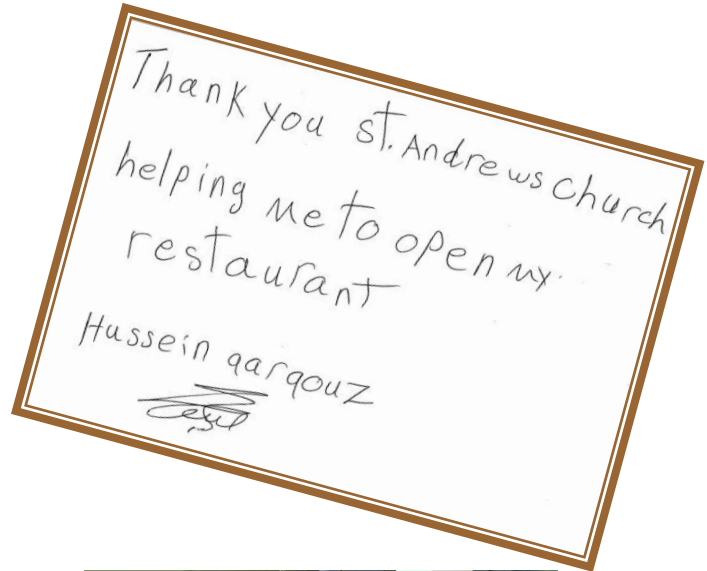 Thank you st. Andrews Church
helping me to open my
restaurant
Hussein qarqouz